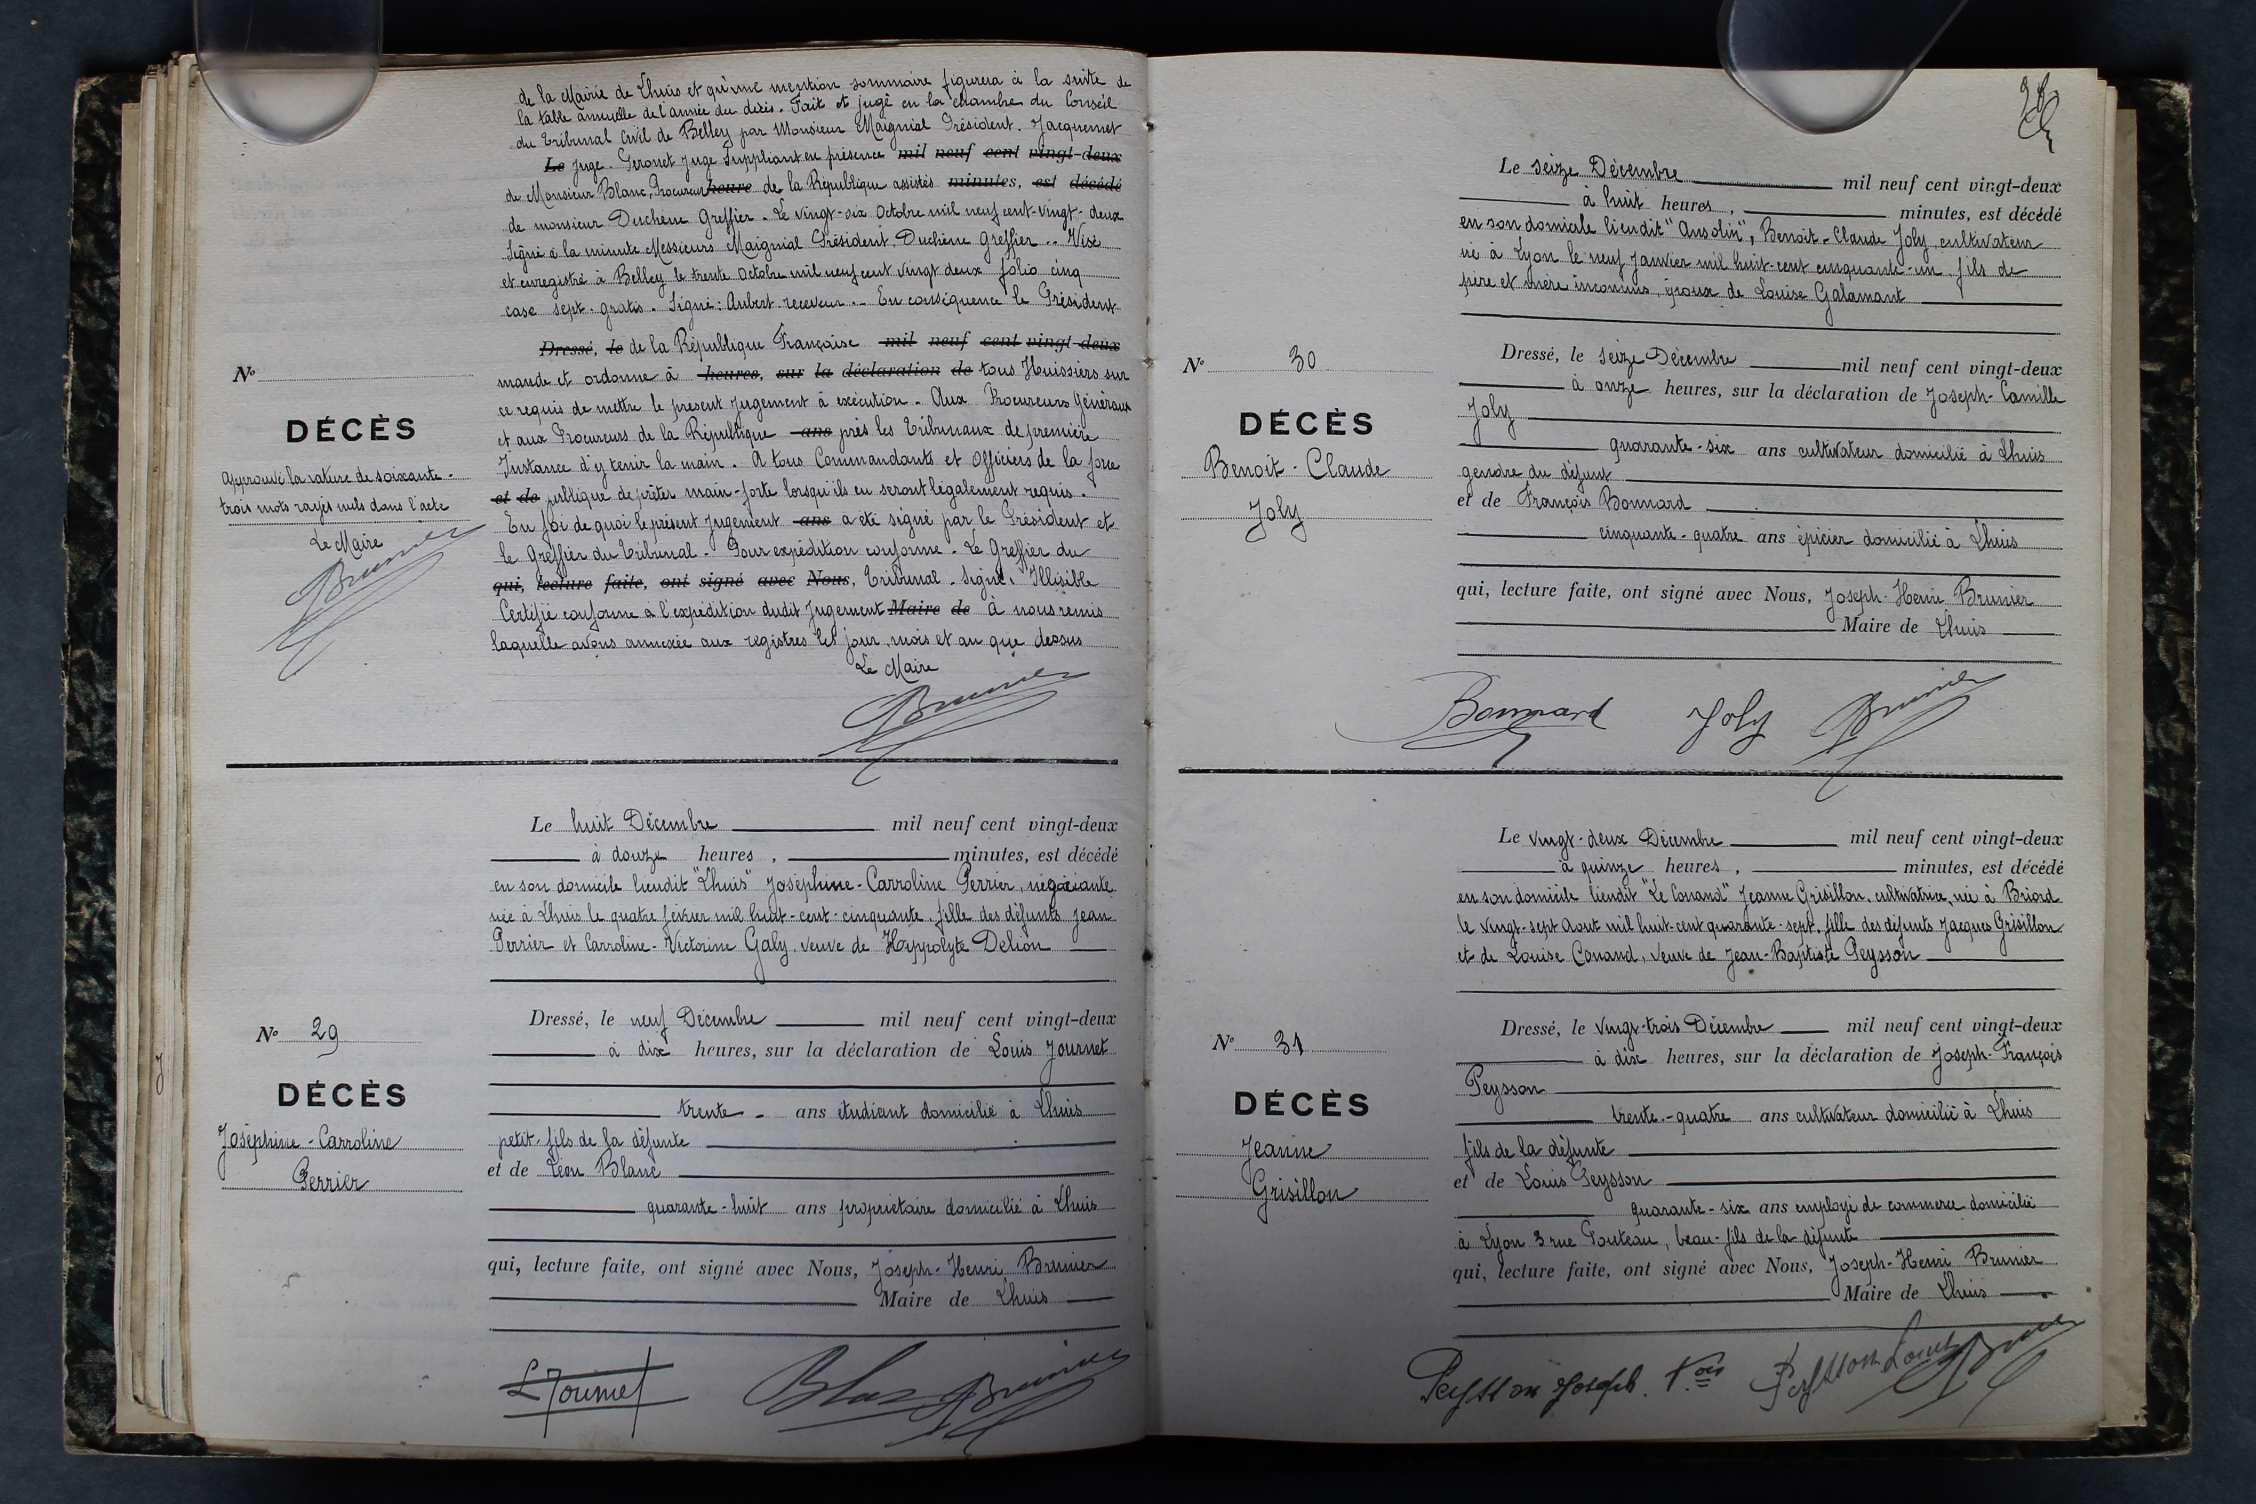 de la Mairie de Lhuis et qu'une mention sommaire figurera à la suite de
la table annuelle de l'année du décès. Fait et jugé en la chambre du Conseil
du Tribunal Civil de Belley par Monsieur Maignial Président. Jacquemet
Le Juge. Peronet Juge Suppliant en présence mil neuf cent vingt-deux
de Monsieur Blanc, Procureur heure de la République assistés minutes, est décédé
de monsieur Duchêne Greffier. Le vingt-six Octobre mil neuf cent-vingt-deux
Signé à la minute Messieurs Maignial Président, Duchêne Greffier .. Visé
et enregistré à Belley le trente Octobre mil neuf cent vingt deux folio cinq
case sept. gratis. Signé: Aubert receveur .- En conséquence le Président
Dressé, le de la République Française mil neuf cent vingt-deux
mande et ordonne à heures, sur la déclaration de tous Huissiers sur
ce requis de mettre le présent jugement à exécution. Aux Procureurs Généraux
et aux Procureurs de la République ans près les Tribunaux de première
Instance d'y tenir la main. A tous Commandants et Officiers de la force
et de publique de prêter main-forte lorsqu'ils en seront légalement requis.
En foi de quoi le présent jugement ans a été signé par le Président et
le Greffier du Tribunal. Pour expédition conforme. Le Greffier du
qui, lecture faite, ont signé avec Nous, Tribunal. Signé, Illisible
Certifié conforme à l'expédition dudit Jugement Maire de à nous remis
laquelle avons annexée aux registres les jour, mois et an que dessus
Le Maire
Brunier
No
DÉCÈS
Approuvé la rature de soixante-
trois mots rayés nuls dans l'acte
Le Maire
Brunier
Le huit Décembre mil neuf cent vingt-deux
à douze heures, minutes, est décédé
en son domicile lieudit "Lhuis" Joséphine-Carroline Perrier, négociante
née à Lhuis le quatre février mil huit-cent-cinquante. fille des défunts Jean
Perrier et Carroline-Victorine Galy. veuve de Hyppolyte Delion
No 29
DÉCÈS
Joséphine-Carroline
Perrier
Dressé, le neuf Décembre mil neuf cent vingt-deux
à dix heures, sur la déclaration de Louis Journet
trente - ans étudiant domicilié à Lhuis
petit-fils de la défunte
et de Léon Blanc
quarante-huit ans propriétaire domicilié à Lhuis
qui, lecture faite, ont signé avec Nous, Joseph-Henri Brunier
Maire de Lhuis
L Journet Blanc Brunier
Le seize Décembre mil neuf cent vingt-deux
à huit heures, minutes, est décédé
en son domicile lieudit "Ansolin", Benoit-Claude Joly, cultivateur
né à Lyon le neuf Janvier mil huit-cent cinquante-un. fils de
père et mère inconnus, époux de Louise Galamant
No 30
DÉCÈS
Benoit-Claude
Joly
Dressé, le seize Décembre mil neuf cent vingt-deux
à onze heures, sur la déclaration de Joseph-Camille
Joly
quarante-six ans cultivateur domicilié à Lhuis
gendre du défunt
et de François Bonnard
cinquante-quatre ans épicier domicilié à Lhuis
qui, lecture faite, ont signé avec Nous, Joseph-Henri Brunier
Maire de Lhuis
Bonnard Joly Brunier
Le vingt-deux Décembre mil neuf cent vingt-deux
à quinze heures, minutes, est décédé
en son domicile lieudit "Le Conand" Jeanne Grisillon, cultivatrice, née à Briord
le vingt-sept Aout mil huit-cent quarante-sept, fille des défunts Jacques Grisillon
et de Louise Conand, veuve de Jean-Baptiste Peysson
No 31
DÉCÈS
Jeanne
Grisillon
Dressé, le vingt-trois Décembre mil neuf cent vingt-deux
à dix heures, sur la déclaration de Joseph-François
Peysson
trente-quatre ans cultivateur domicilié à Lhuis
fils de la défunte
et de Louis Peysson
quarante-six ans employé de commerce domicilié
à Lyon 3 rue Pouteau, beau-fils de la défunte
qui, lecture faite, ont signé avec Nous, Joseph-Henri Brunier
Maire de Lhuis
Peysson Joseph. Fçois Peysson Louis Brunier